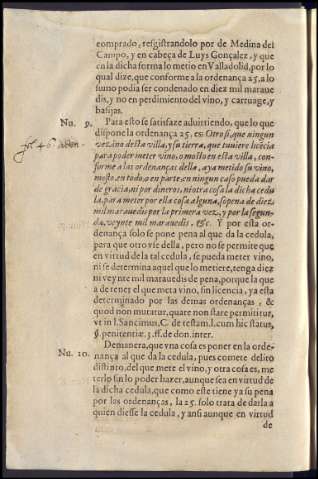 comprado, resgistrandolo por de Medina del
Campo, y en cabeça de Luys Gonçalez, y que
en la dicha forma lo metio en Valladolid, por lo
qual dize, que conforme a la ordenança 25, a lo
sumo podia ser condenado en diez mil maraue
dis, y no en perdimiento del vino, y carruage, y
basijas.
Nu. 9. Para esto se satisfaze aduirtiendo, que lo que
dispone la ordenança 25. es: Otro si, que ningun
vezino desta villa, y su tierra, que tuuiere licẽcia
para poder meter vino, o mosto en esta villa, confor-
me a las ordenanças della, aya metido su vino,
mosto, en todo, o en parte, en ningun caso pueda dar
de gracia, ni por dineros, ni otra cosa la dicha cedu
la, para meter por ella cosa alguna, so pena de diez
mil marauedis por la primera vez, y por la segun-
da, veynte mil marauedis, &c. Y por esta or-
denança solo se pone pena al que da la cedula,
para que otro vse della, pero no se permite que
en virtud de la tal cedula, se pueda meter vino,
ni se determina aquel que lo metiere, tenga diez
ni veynte mil marauedis de pena, porque la que
a de tener el que meta vino, sin licencia, ya esta
determinado por las demas ordenanças, &
quod non mutatur, quare non stare permititur,
vt in l. Sancimus, C. de testam. l. cum hic status,
§. penitentiæ. 3. ff. de don. inter.
Nu. 10. Demanera, que vna cosa es poner en la orde-
nança al que da la cedula, pues comete delito
distinto, del que mete el vino, y otra cosa es, me
terlo sin lo poder hazer, aunque sea en virtud de
la dicha cedula, que como este tiene ya su pena
por las ordenanças, la 25. solo trata de darla a
quien diesse la cedula, y ansi aunque en virtud
de